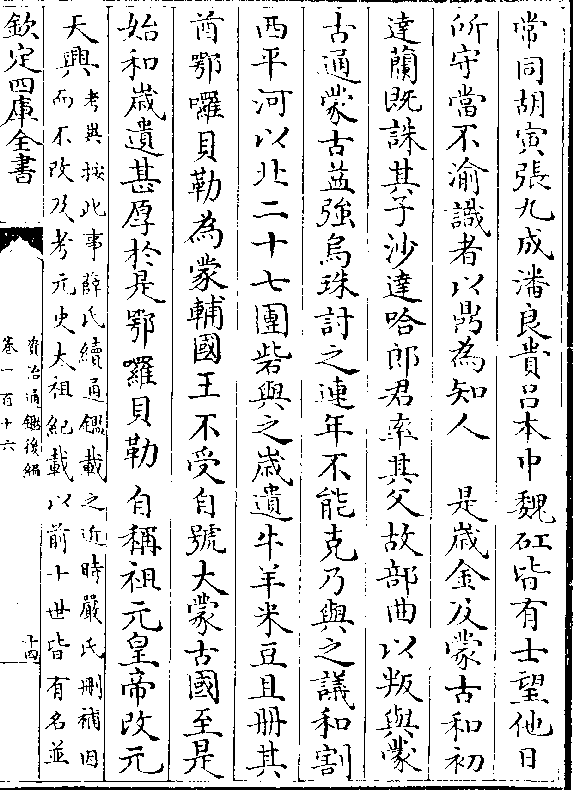 常同胡寅張九成潘良貴吕本中魏矼皆有士望他日
所守當不渝識者以鼎為知人　是歲金及蒙古和初
達蘭既誅其子沙達哈郎君率其父故部曲以叛與蒙
古通蒙古益強烏珠討之連年不能克乃與之議和割
西平河以北二十七團砦與之歲遺牛羊米豆且冊其
酋鄂囉貝勒為蒙輔國王不受自號大蒙古國至是
始和歲遺甚厚於是鄂囉貝勒自稱祖元皇帝改元
天興考異按此事薛氏續通鑑載之近時嚴氏刪補因
而不改及考元史太祖紀載以前十世皆有名並
欽定四庫全書
資治通鑑後編
卷一百十六
十四